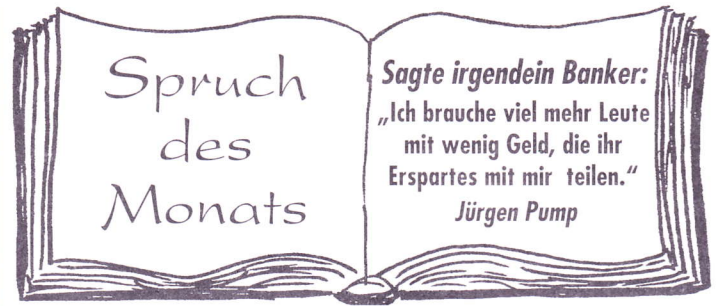 Spruch
des
Monats
Sagte irgendein Banker:
„Ich brauche viel mehr Leute
mit wenig Geld, die ihr
Erspartes mit mir teilen.“
Jürgen Pump